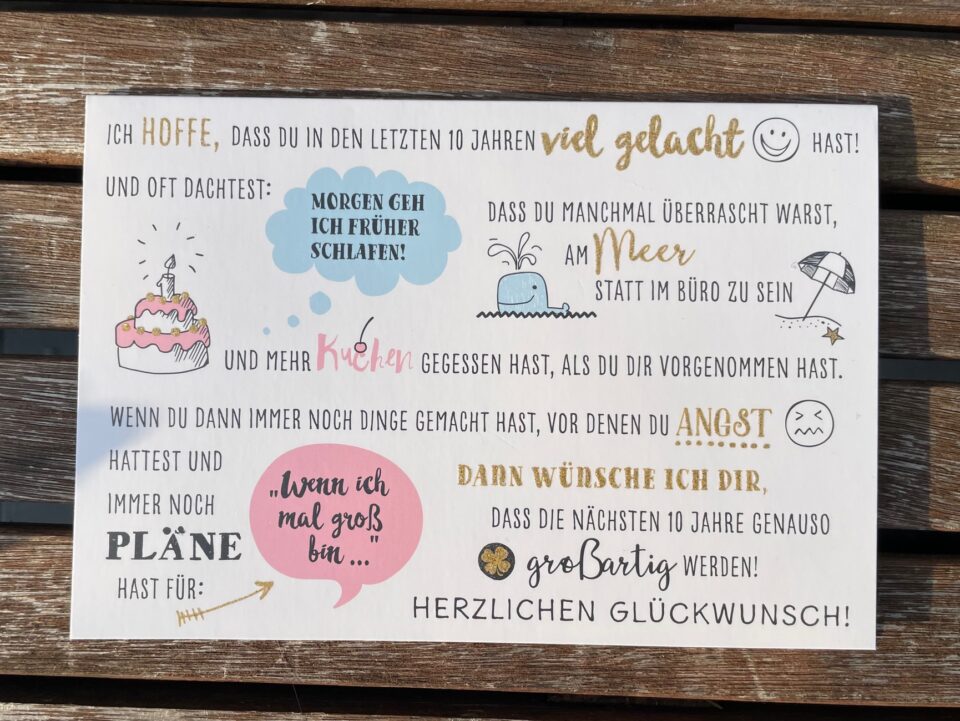 ICH HOFFE, DASS DU IN DEN LETZTEN 10 JAHREN viel gelacht HAST!
UND OFT DACHTEST:
MORGEN GEH
ICH FRÜHER
SCHLAFEN!
DASS DU MANCHMAL ÜBERRASCHT WARST,
AM Meer
STATT IM BÜRO ZU SEIN
UND MEHR Kuchen GEGESSEN HAST, ALS DU DIR VORGENOMMEN HAST.
WENN DU DANN IMMER NOCH DINGE GEMACHT HAST, VOR DENEN DU ANGST
HATTEST UND
IMMER NOCH
PLÄNE
HAST FÜR:
„Wenn ich
mal groß
bin ..."
DANN WÜNSCHE ICH DIR,
DASS DIE NÄCHSTEN 10 JAHRE GENAUSO
großartig WERDEN!
HERZLICHEN GLÜCKWUNSCH!